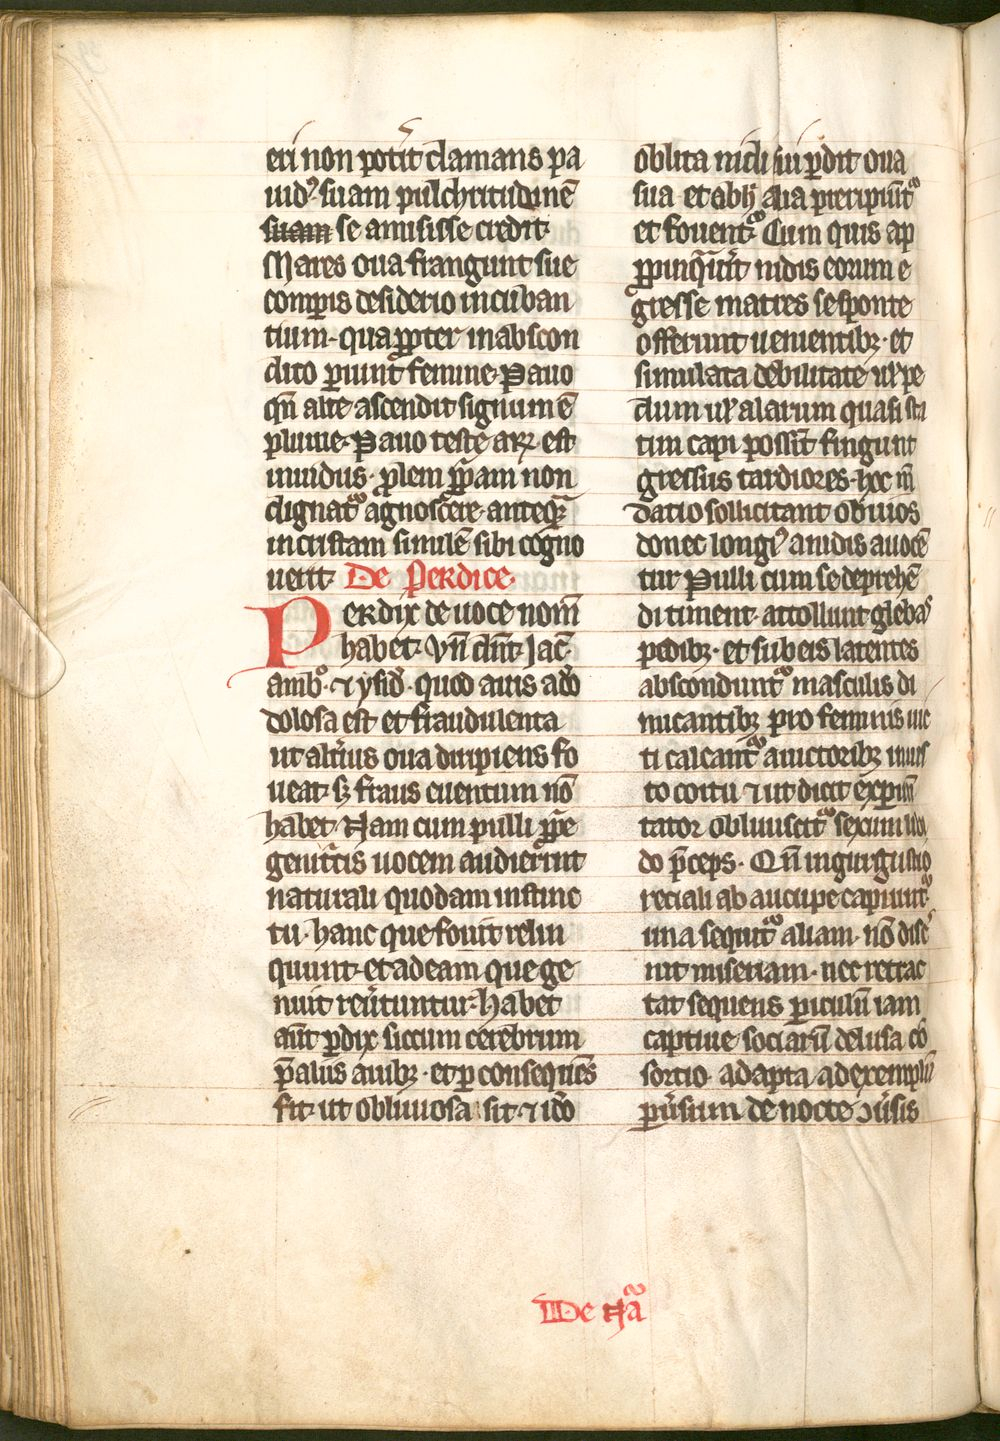 eri non potit͛ clamans pa
uid⁹ suam pulchritudinē
suam se amisisse credit·
Mares oua frangunt sue
comparis desiderio incuban
tium· qua ꝓpter in abscon
dito pariunt femine· Pauo
cū alte ascendit signum ē
pluuie· Pauo teste arꝫ est
inuidus· ꝓlem ꝓpriam non
dignatᷣ agnoscere· anteqᷓ
in cristam simulē sibi cogno
uerit· De Perdice·
Perdix de uoce nom̄
habet· vn̄ dn̄t Jac̄
amb̾· ⁊ ysid̾· quod auis adō
dolosa est et fraudulenta
ut alti͛us oua diripiens fo
ueat· sꝫ fraus euentum nō
habet· Nam cum pulli ꝓprie
genit͛cis uocem audierint
naturali quodam instinc
tu· hanc que fouit relin
quunt· et ad eam que ge
nuit reu̾tuntur· habet
aūt p̱dix siccum cerebrum
p̄ aliis auibꝫ· et p̱ consequēs
fit· ut obliuiosa sit· ⁊ idō
oblita nidi sui p̱dit oua
sua et obli alia precipiūtᷣ
et fouentᷣ· Cum quis ap
ꝓpinq̄u̾it nidis eorum e
gresse matres se sponte
offerunt uenientibꝫ· et
simulata debilitate ul̾ pe
dum ul̾ alarum quasi sta
tim capi possīt fingunt
gressus tardiores· hoc m̄
datio sollicitant obuios
donec longi⁹ a nidis auocē
tur Pulli cum se deprehē
di timent· attollunt glebas
pedibꝫ· et sub eis latentes
absconduntᷣ masculis di
micantibꝫ pro feminis uic
ti calcantᷣ a uictoribꝫ inuis
to coitu ⁊ ut dicit exp̱im̄
tator obliuiscitᷣ sexum libi
do p̄ceps· Qn̄ in gurgustio
reciali ab aucupe capiuntᷣ
una sequitᷣ aliam· nō disc̾
nit miseriam· nec retrac
tat sequens p̱iculū iam
captiue· sociarū delusa cō
sortio· adapta ad exemplū
p̱u̾sum de nocte ꝯu̾sis
III De Nᷓa